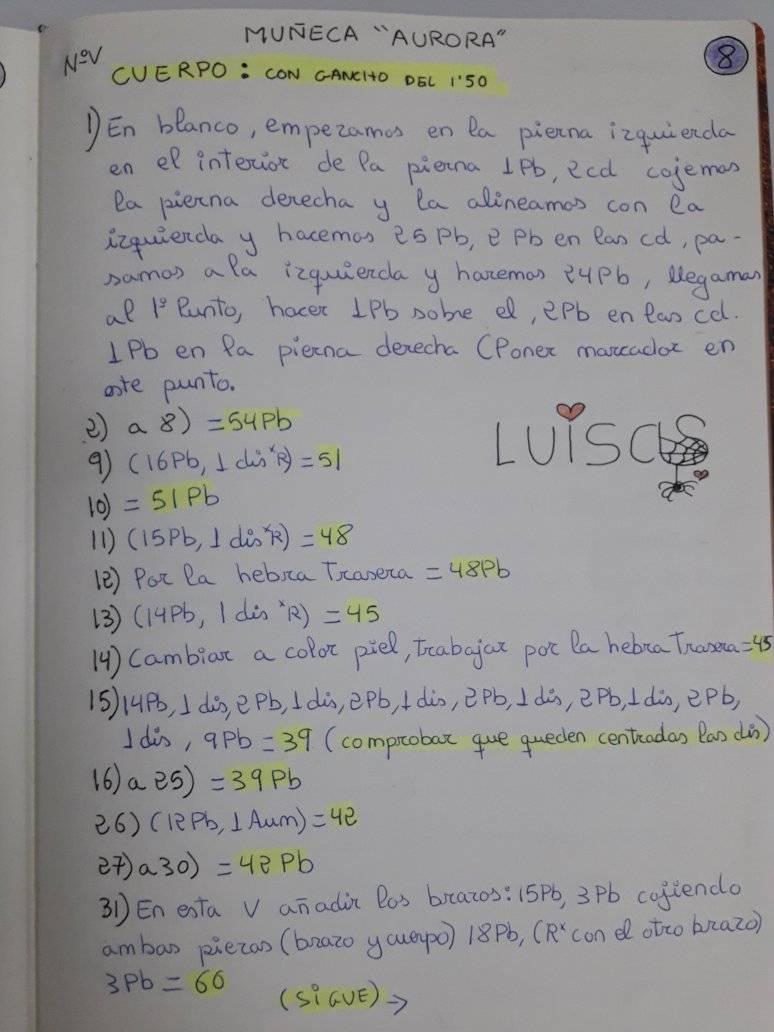 MUÑECA "AURORA"
8
NºV
CUERPO: CON GANCHO DEL 1'50
1) En blanco, empezamos en la pierna izquierda
en el interior de la pierna 1Pb, 2cd cojemos
la pierna derecha y la alineamos con la
izquierda y hacemos 25 Pb, 2 Pb en las cd, pa-
samos a la izquierda y haremos 24Pb, llegamos
al 1º Punto, hacer 1Pb sobre el, 2Pb en las cd.
1Pb en la pierna derecha (Poner marcador en
este punto.
2) a 8) = 54Pb
LUISAS
9) (16Pb, 1 dis*R) = 51
10) = 51Pb
11) (15Pb, 1 dis*R) = 48
12) Por la hebra Trasera = 48Pb
13) (14Pb, 1 dis*R) = 45
14) Cambiar a color piel, trabajar por la hebra Trasera = 45
15) 14Pb, 1 dis, 2Pb, 1 dis, 2Pb, 1 dis, 2Pb, 1 dis, 2Pb, 1 dis, 2Pb,
1 dis, 9Pb = 39 (comprobar que queden centradas las dis)
16) a 25) = 39Pb
26) (12Pb, 1 Aum) = 42
27) a 30) = 42Pb
31) En esta V añadir los brazos: 15Pb, 3Pb cojiendo
ambas piezas (brazo y cuerpo) 18Pb, (R* con el otro brazo)
3Pb = 60
(SIGUE) →